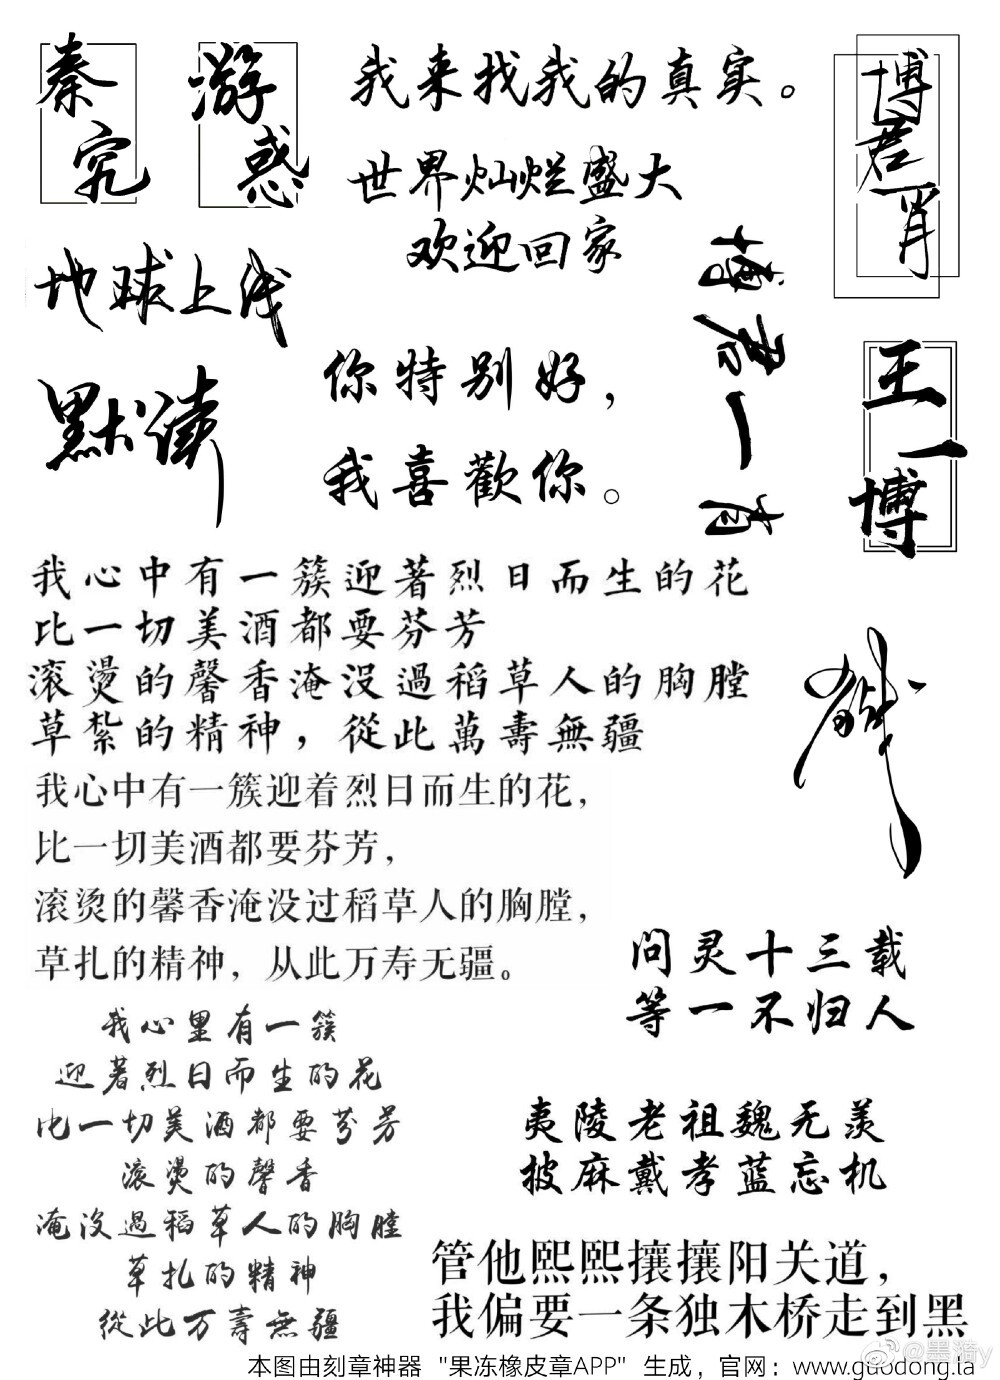 秦究
游惑
我来找我的真实。
世界灿烂盛大
欢迎回家
博君一肖
地球上线
博君一肖
默读
你特别好，
我喜歡你。
王一博
我心中有一簇迎著烈日而生的花
比一切美酒都要芬芳
滚燙的馨香淹没過稻草人的胸膛
草紮的精神，從此萬壽無疆
我心中有一簇迎着烈日而生的花，
比一切美酒都要芬芳，
滚烫的馨香淹没过稻草人的胸膛，
草扎的精神，从此万寿无疆。
问灵十三载
等一不归人
我心里有一簇
迎著烈日而生的花
比一切美酒都要芬芳
滚燙的馨香
淹没過稻草人的胸膛
草扎的精神
從此万壽無疆
夷陵老祖魏无羡
披麻戴孝蓝忘机
管他熙熙攘攘阳关道，
我偏要一条独木桥走到黑
@黑漪y
本图由刻章神器 "果冻橡皮章APP" 生成，官网：www.guodong.la